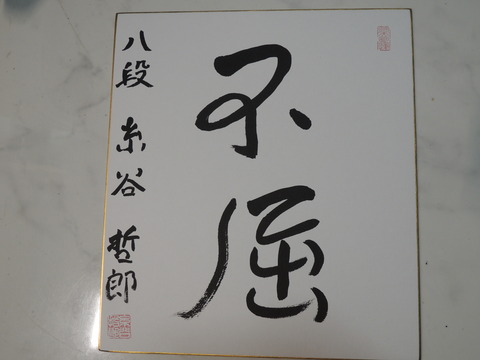 不屈
八段 糸谷 哲郎